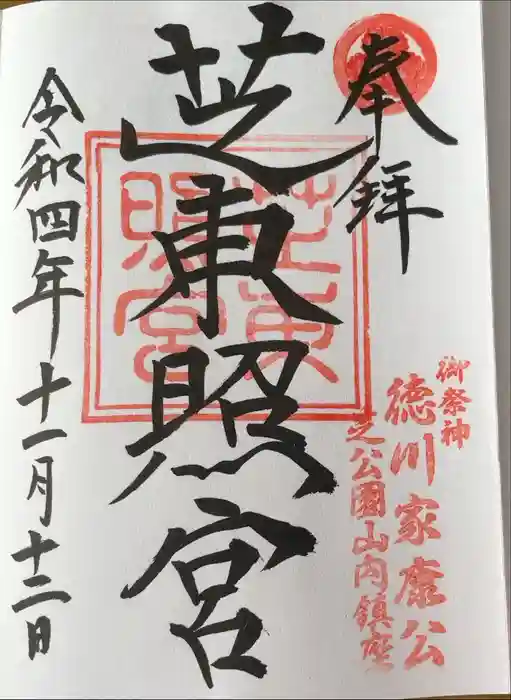 奉拝
御祭神
徳川家康公
芝公園山内鎮座
芝東照宮
芝東照宮
令和四年十一月十二日